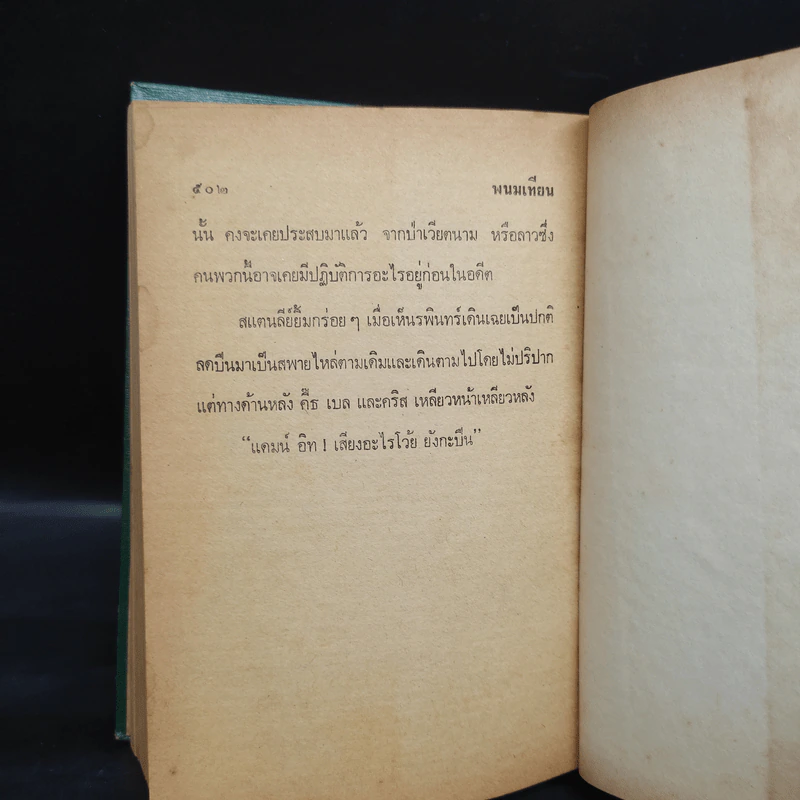 ๕๐๒ พนมเทียน
นั้น คงจะเคยประสบมาแล้ว จากป่าเวียตนาม หรือลาวซึ่ง
คนพวกนี้อาจเคยมีปฏิบัติการอะไรอยู่ก่อนในอดีต
สแตนลีย์ยิ้มกร่อยๆ เมื่อเห็นรพินทร์เดินเฉยเป็นปกติ
ลดปืนมาเป็นสพายไหล่ตามเดิมและเดินตามไปโดยไม่ปริปาก
แต่ทางด้านหลัง คี๊ธ เบล และคริส เหลียวหน้าเหลียวหลัง
“แดมน์ อิท ! เสียงอะไรโว้ย ยังกะปืน”